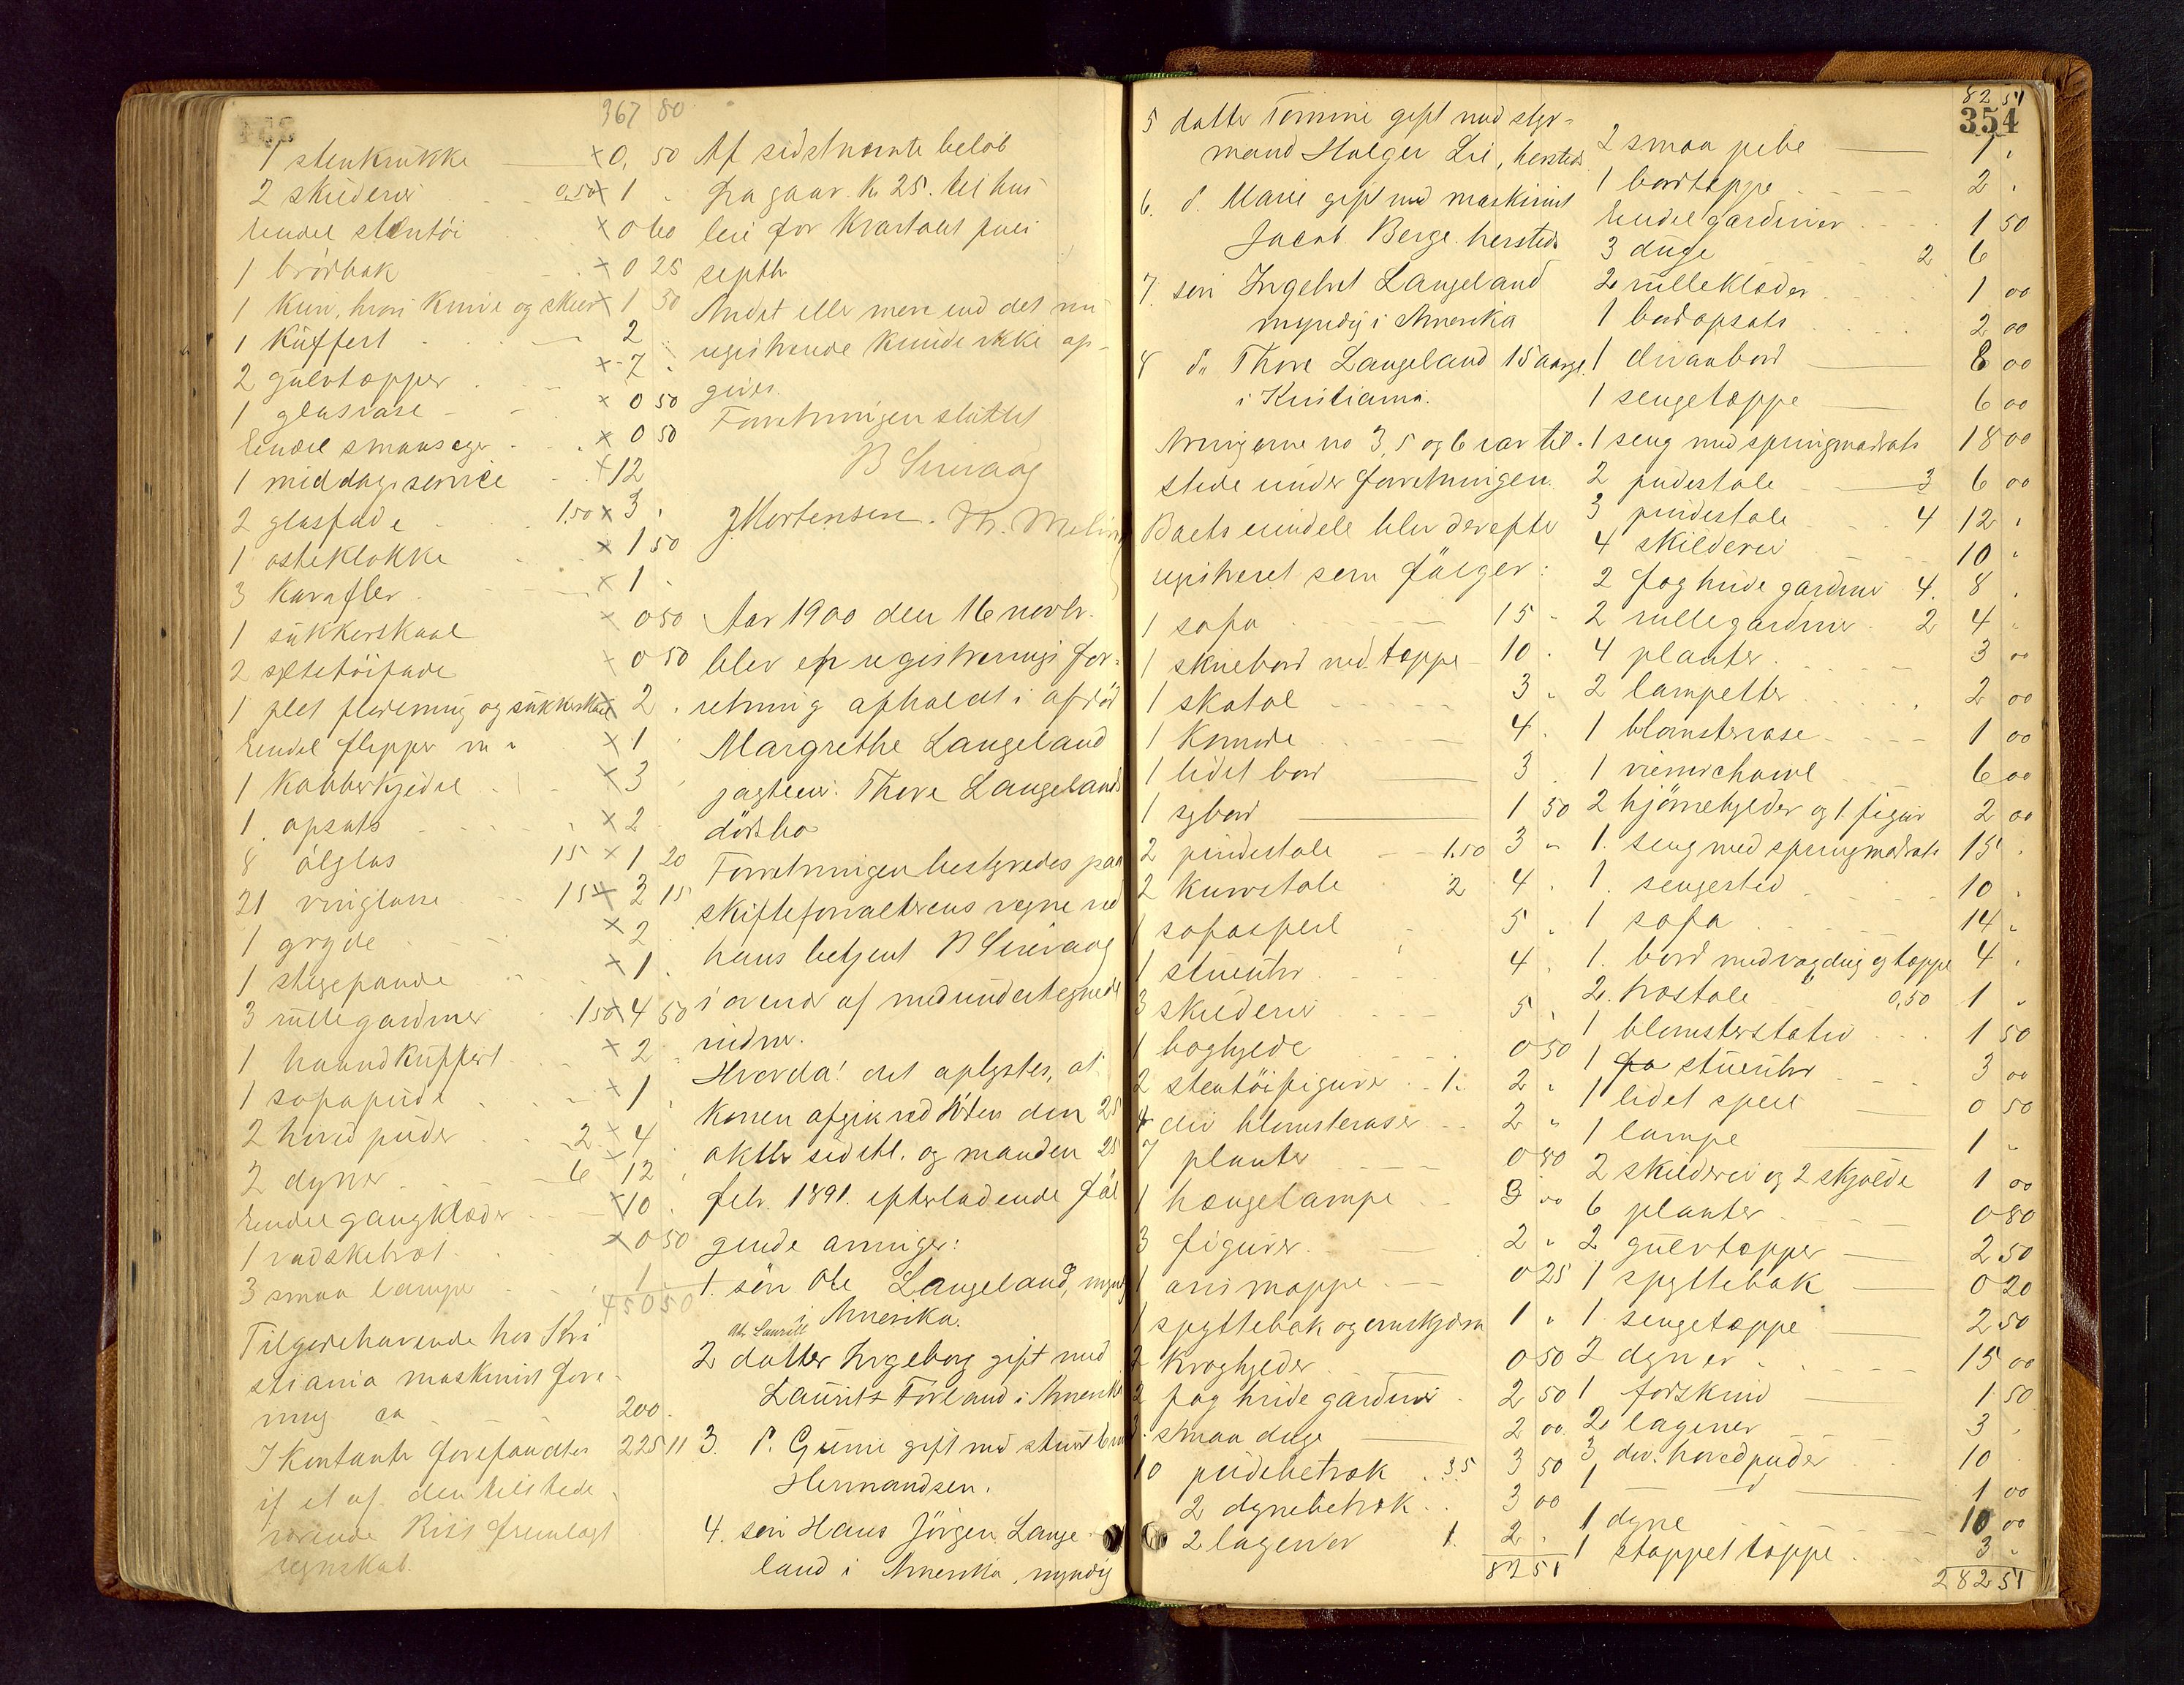 367 80
1 stenkrukke 0,50
2 skilderier 0,50 1 "
Endel stentöi 0 60
1 brödbak 0 25
1 Kurv, hvori Knive og skeer 1 50
1 Kuffert 2
2 gulvtæpper 7 "
1 glasvase 0 50
Endel smaasager 0 50
1 middagsservice 12
2 glasfade 1,50 3 "
1 osteklokke 1 50
3 Karafler 1 "
1 sukkerskaal 0 50
2 syltetöifade 0 50
1 plet and sukkerskaal 2 "
Endel flipper m. v. 1 "
1 Kobberkjedel 3 "
1 opsats 2 "
8 ölglas 15 1 20
21 vinglasse 15 3 15
1 gryde 2
1 stegepande 1 "
3 rullegardiner 1 50 4 50
1 haandkuffert 2 "
1 sofapude 1 "
2 hovedpuder 2 4
2 dyner 6 12 "
Endel gangklæder 10 "
1 vadsketræt 0 50
3 smaa lamper 1 "
450 50
Tilgodehavende hos Kri
stiania maskinist fore-
ning ca 200 "
I Kontanter forefandtes 225 11
if et af den tilstede-
værende fremlagt
regnskab.
Af sidstnævnte beløb
fragaar Kr 25. til hus
leie for Kvartalet
septbr
Andet eller mere end det nu
registrerede kunde ikke op-
gives.
Forretningen sluttet
B Sirevaag
J Mortensen. M. Meling
Aar 1900 den 16 novbr.
blev en registrerings for-
retning afholdt i afdöd
Margrethe Langeland
jagteier Thore Langelands
dödsbo
Forretningen bestyredes paa
skifteforvalterens vegne ved
hans betjent B Sirevaag
i overvær af medundertegnede
vidner.
Hvorda! det oplystes, at
Konen afgik ved döden den 25
oktbr sidstl. og manden 25
febr. 1891. efterladende föl
gende arvinger:
1. sön Ole Langeland, myndig
i Amerika.
2 datter Ingeborg gift med
Lauritz Förland i Amerika
3. d. Gurine gift med
Hermandsen.
4. sön Hans Jörgen Lange
land i Amerika, myndig
354
5 datter Tomine gift med styr-
mand Holger Lie, hersteds
6. d. Marie gift med maskinist
Jacob Berge hersteds
7. sön Ingebret Langeland
myndig i Amerika
8 d. Thore Langeland 15 aar gl.
i Kristiania.
Arvingerne no 3, 5 og 6 var til-
stede under forretningen.
Boets eiendele blev derefter
registreret som fölger:
1 sofa 15 "
1 skrivebord med tæppe 10 "
1 skatol 3 "
1 Komode 4 "
1 lidet bord 3
1 sybord 1 50
2 pindestole 1.50 3 "
2 kurvstole 2 4 "
1 sofaspeil 5 "
1 stueuhr 4 "
3 skilderier 5 "
1 boghylde 0 50
2 stentöifigurer 1. 2 "
4 div blomstervaser 2 "
7 planter 0 80
1 hængelampe 3 00
3 figurer 2 "
1 avismappe 0 25
1 spyttebak og ovnskjærm 1 "
2 kroghylder 0 50
2 fag hvide gardiner 2 50
3 smaa duge 2 00
10 pudebetræk 35 3 50
2 dynebetræk 3 00
2 lagener 1. 2 "
82 51
82 51
2 smaa pibe 1 "
1 bordtæppe 2 "
Endel gardiner 1 50
3 duge 2 6
2 rulleklæder 1 00
1 bordopsats 2 00
1 divanbord 8 00
1 sengetæppe 6 00
1 seng med springmadrats 18 00
2 pudestole 3 6 00
3 pindestole 4 12 "
4 skilderier 10 "
2 fag hvide gardiner 4. 8 "
2 rullegardiner 2 4 "
4 planter 3 00
2 lampetter 2 00
1 blomstervase 1 00
1 6 00
2 hjörnehylder og 1 figur 2 00
1. seng med springmadrats 15 "
1. sengested 10 "
1 sofa 14 "
1. bord med voxdug og tæppe 4 "
2. træstole 0,50 1 "
1 blomsterstativ 1 50
1 stueuhr 3 00
1 lidet speil 0 50
1 lampe 1 "
2 skilderier og 2 skjolde 1 00
6 planter 0 80
2 gulvtæpper 2 50
1 spyttebak 0 20
1 sengetæppe 2 50
2 dyner 15 00
1 forskind 1 50
2 lagener 3 "
3 div. hovedpuder 10
1 d 1 00
1 dyne 10 00
1 stoppet tæppe 3 "
282 51